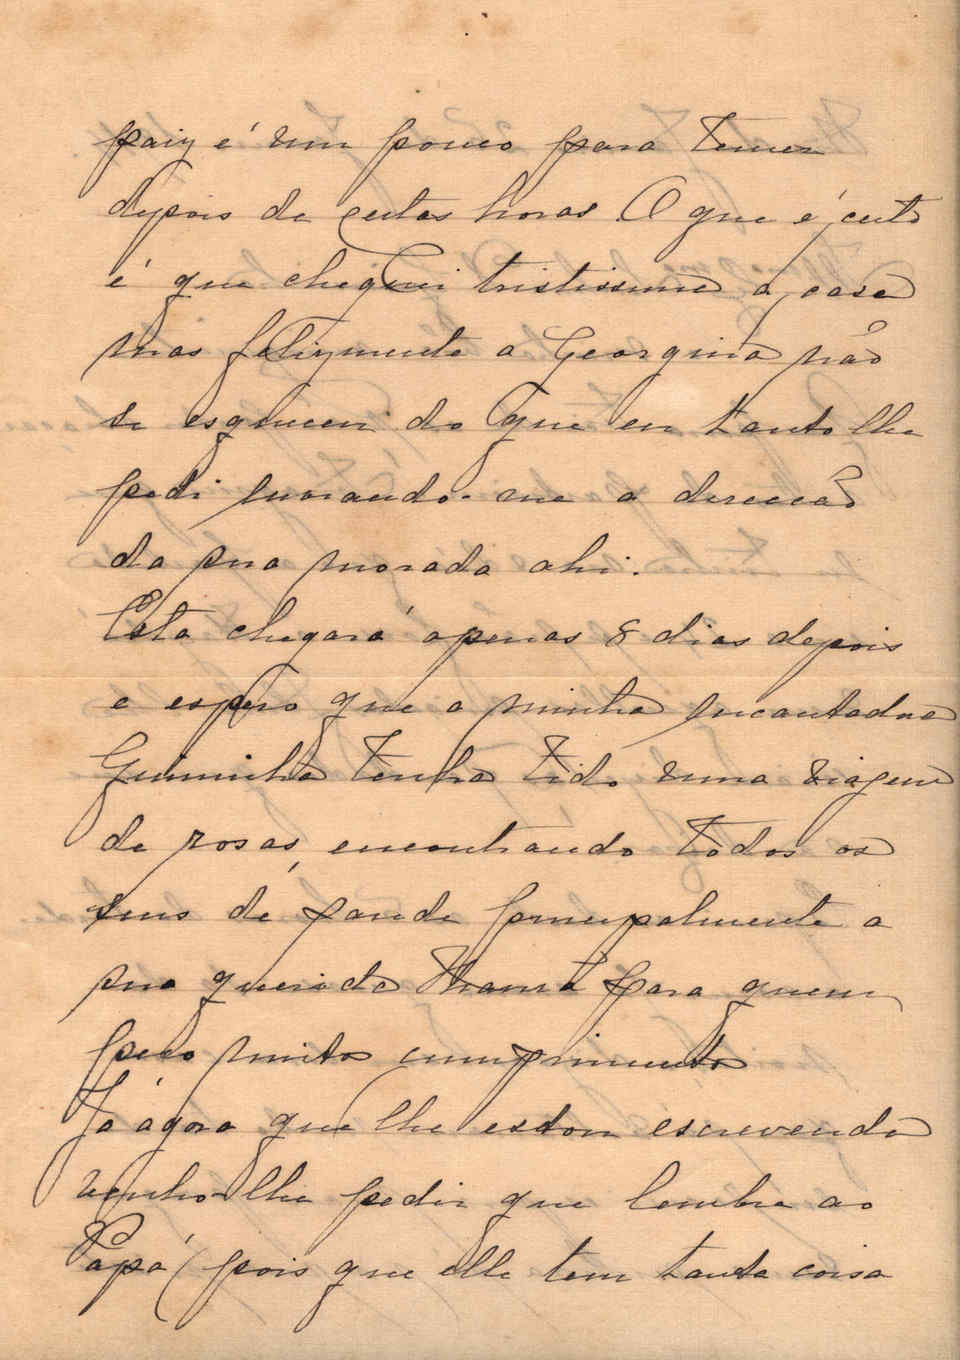 paiz é um pouco para temer
depois de certas horas. O que é certo
é que cheguei tristissima a casa
mas felizmente a Georgina não
se esqueceu do que eu tanto lhe
pedi mandando-me a direcção
da sua morada ahi.
Esta chegará apenas 8 dias depois
e espero que a minha encantadora
Guiminha tenha tido uma viagem
de rosas, encontrando todos os
seus de saude principalmente a
sua querida Mamã para quem
peço muitos cumprimentos
Já agora que lhe estou escrevendo
venho-lhe pedir que lembre ao
Papá (pois que elle tem tanta coisa